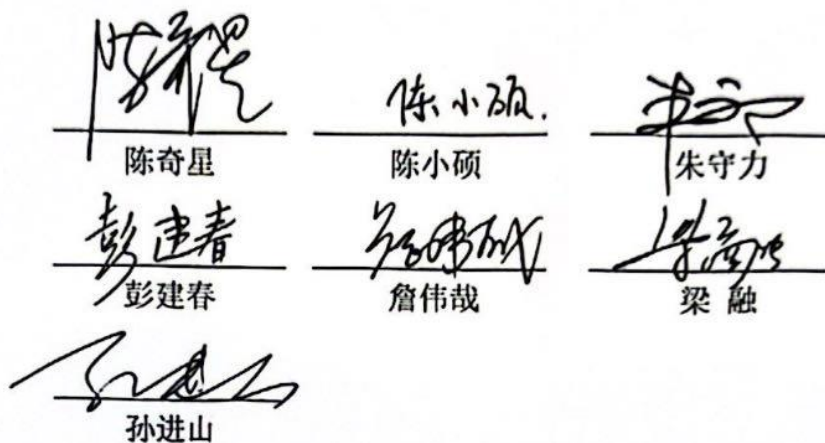 陈奇星 陈小硕. 朱守力
陈奇星 陈小硕 朱守力
彭建春 詹伟哉 梁融
彭建春 詹伟哉 梁 融
孙进山
孙进山